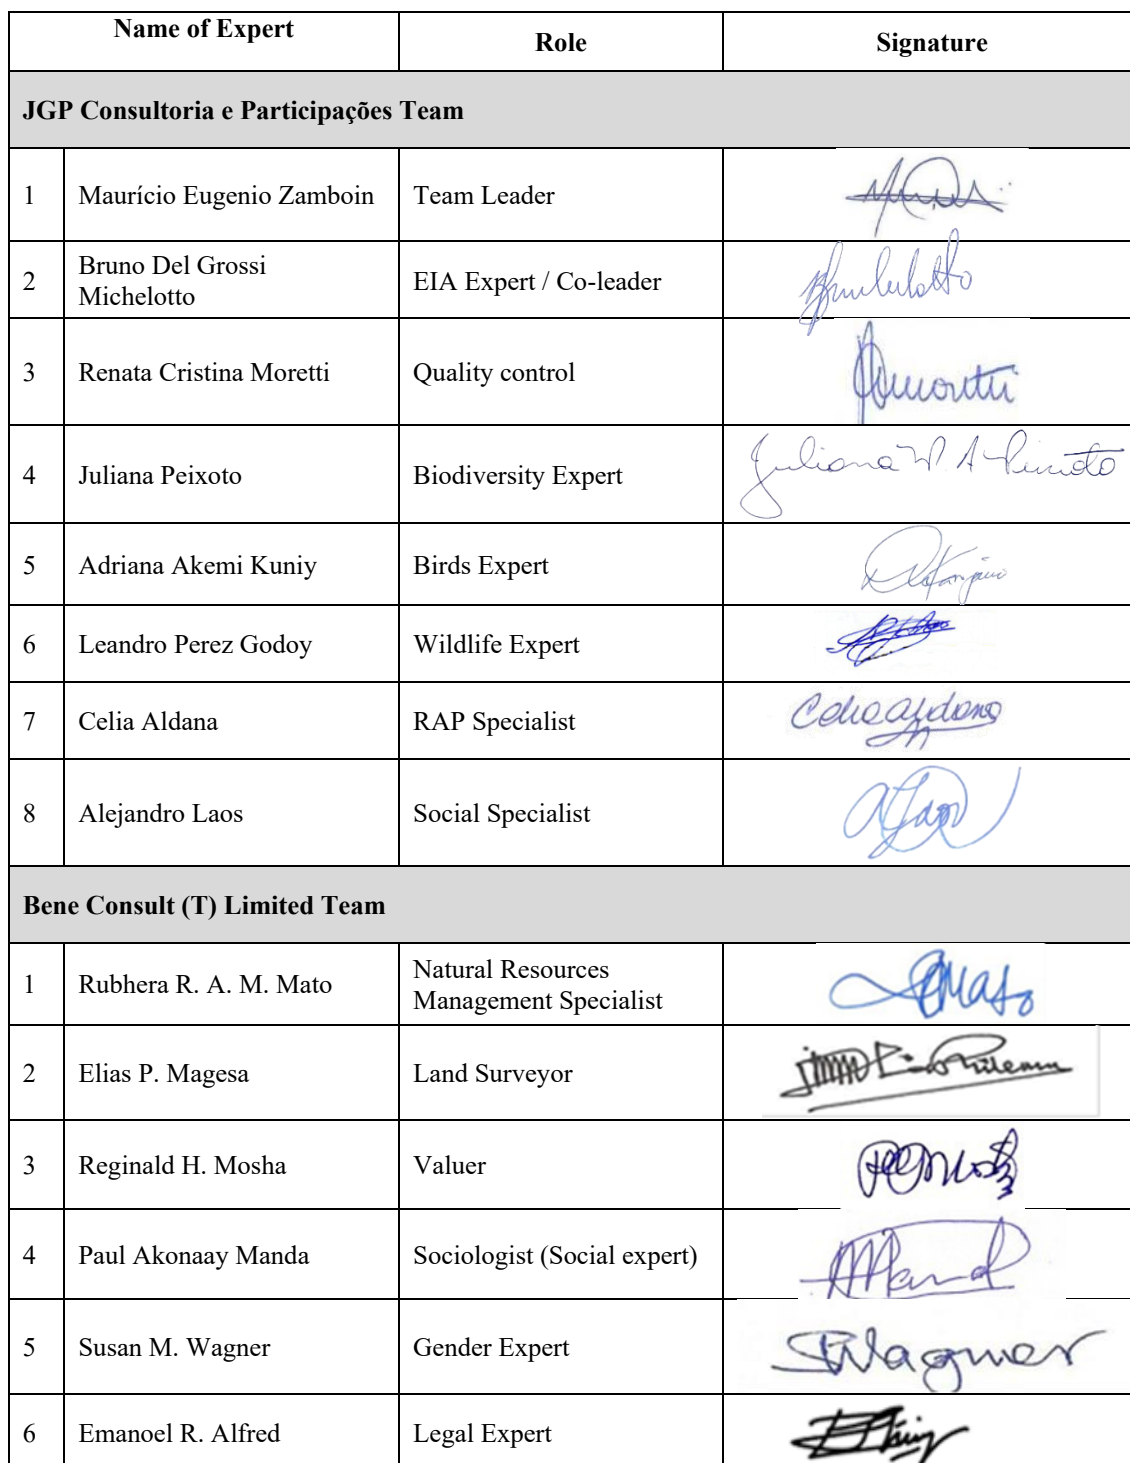 Name of Expert Role Signature
JGP Consultoria e Participações Team
1 Maurício Eugenio Zamboin Team Leader
2 Bruno Del Grossi Michelotto EIA Expert / Co-leader
3 Renata Cristina Moretti Quality control
4 Juliana Peixoto Biodiversity Expert Juliana
5 Adriana Akemi Kuniy Birds Expert
6 Leandro Perez Godoy Wildlife Expert
7 Celia Aldana RAP Specialist
8 Alejandro Laos Social Specialist
Bene Consult (T) Limited Team
1 Rubhera R. A. M. Mato Natural Resources Management Specialist
2 Elias P. Magesa Land Surveyor
3 Reginald H. Mosha Valuer
4 Paul Akonaay Manda Sociologist (Social expert)
5 Susan M. Wagner Gender Expert SWagner
6 Emanoel R. Alfred Legal Expert